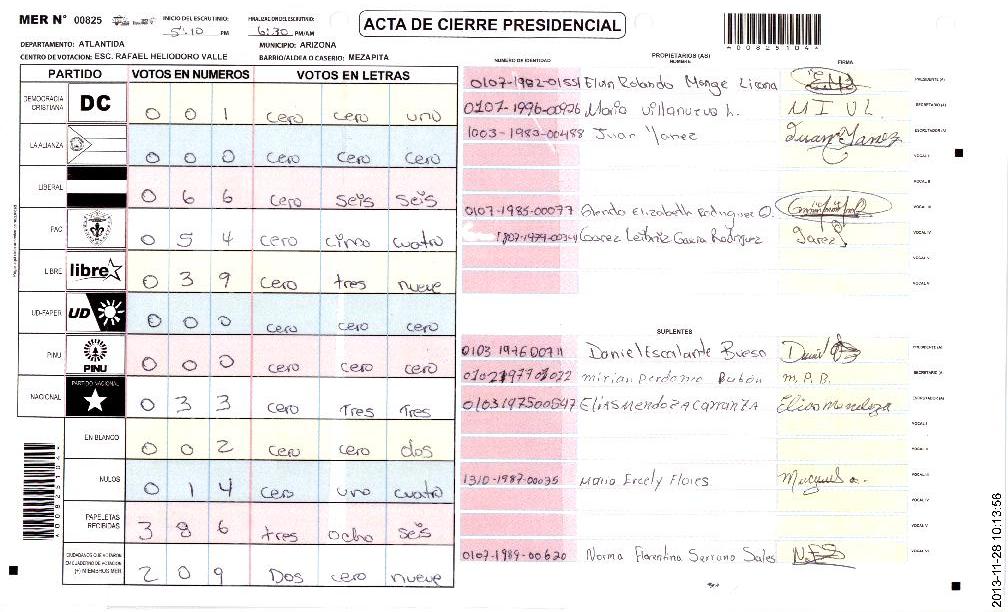 MER N° 00825
INICIO DEL ESCRUTINIO: 5:10 PM
FINALIZACION DEL ESCRUTINIO: 6:30 PM/AM
ACTA DE CIERRE PRESIDENCIAL
A00825104A
DEPARTAMENTO: ATLANTIDA
MUNICIPIO: ARIZONA
CENTRO DE VOTACION: ESC. RAFAEL HELIODORO VALLE
BARRIO/ALDEA O CASERIO: MEZAPITA
PARTIDO VOTOS EN NUMEROS VOTOS EN LETRAS
DEMOCRACIA CRISTIANA DC 0 0 1 cero cero uno
LA ALIANZA 0 0 0 cero cero cero
LIBERAL 0 6 6 cero seis seis
PAC 0 5 4 cero cinco cuatro
LIBRE libre 0 3 9 cero tres nueve
UD-FAPER UD 0 0 0 cero cero cero
PINU PINU 0 0 0 cero cero cero
NACIONAL PARTIDO NACIONAL 0 3 3 cero Tres Tres
EN BLANCO 0 0 2 cero cero dos
NULOS 0 1 4 cero uno cuatro
PAPELETAS RECIBIDAS 3 8 6 tres ocho seis
CIUDADANOS QUE VOTARON EN CUADERNO DE VOTACION (+) MIEMBROS MER 2 0 9 Dos cero nueve
A00825104A
PROPIETARIOS (AS)
NUMERO DE IDENTIDAD NOMBRE FIRMA
0107-1982-01551 Elvin Rolando Monge Licona PRESIDENTE (A)
0107-1996-00926 Mario Villanueva L. M I V L SECRETARIO (A)
1003-1983-00488 Juan Yanez Juan Yanez ESCRUTADOR (A)
VOCAL I
VOCAL II
0107-1985-00077 Glenda Elizabeth Rodriguez O. VOCAL III
1807-1979-0034 Garez Leibniz Garcia Rodriguez Garez VOCAL IV
VOCAL V
VOCAL VI
SUPLENTES
0103 1976 00711 Daniel Escalante Bueso PRESIDENTE (A)
mirian perdomo Bubón M.P.B. SECRETARIO (A)
0103197500547 ELIAS MENDOZA CARRANZA Elias Mendoza ESCRUTADOR (A)
VOCAL I
VOCAL II
1310-1987-00035 Maria Ercely Flores VOCAL III
VOCAL IV
VOCAL V
0107-1989-00620 Norma Florentina Serrano Sales VOCAL VI
2013-11-28 10:13:56